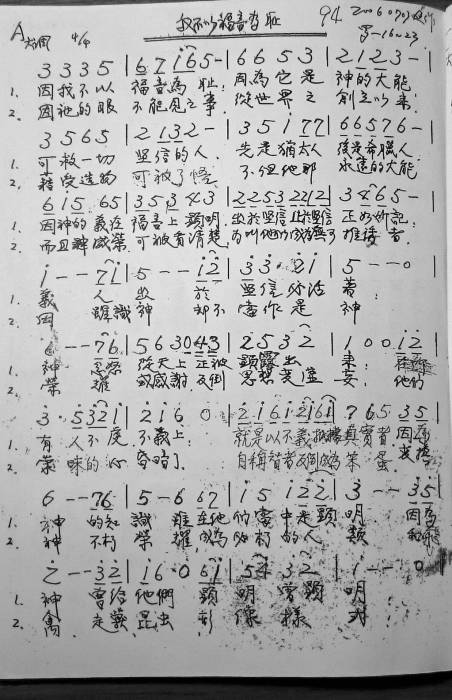 我不以福音為恥 94 2006 0703
A大調 4/4 羅一16~23
3 3 3 5 | 6 7 1 6 5 - | 6 6 5 3 | 2 1 2 3 - |
1. 因我不以 福音為恥; 因為它是 神的大能
2. 因祂的眼 不能見之事 從世界之 創立以來
3 5 6 5 | 2 1 3 2 - | 3 5 1 7 7 | 6 6 5 7 6 - |
1. 可救一切 堅信的人 先是猶太人 後是希臘人
2. 藉受造的 可被了悟 不但他那 永遠的大能
6 1 5 . 6 5 | 3 5 3 4 3 | 2 2 5 3 2 2 1 2 | 3 4 6 5 - |
1. 因神的義在 福音上顯明, 出於堅信 於堅信 正如所記:
2. 而且神威榮 可被看清楚, 為叫他們 無可推諉者.
1 - - 7 1 | 5 - - 1 2 | 3 3 2 1 | 5 - - 0 |
1. 義 人 出 於 堅信 必活 著
2. 因 雖識 神 卻不 當作是 神
6 - - 7 6 | 5 6 3 0 4 3 | 2 5 3 2 | 1 0 0 1 2 |
1. 神 忿怒 從天上 正被 顯露出 來:
2. 榮 耀 或感謝 反倒 思想 妄: 他們
3 . 5 3 2 1 | 2 1 6 0 | 2 1 6 1 2 1 6 1 | 7 6 5 3 5 |
1. 有 人不虔 不義上: 就是以不義 真實者 因
2. 蒙昧的心 昏暗了 自稱智者反倒成為 笨蛋
6 - - 7 6 | 5 - 6 6 7 | 1 5 1 2 2 | 3 - - 3 5 |
1. 神 的知 識 在他 們當中是顯 明 因為
2. 神 不朽 榮 耀, 成為 必朽的人 類
2 - - 3 2 | 1 6 . 0 6 1 | 5 4 3 2 | 1 - - 0 |
1. 神 曾給 他們 顯 明 曾顯 明
2. 禽 走獸 昆虫 形 像 樣 式!